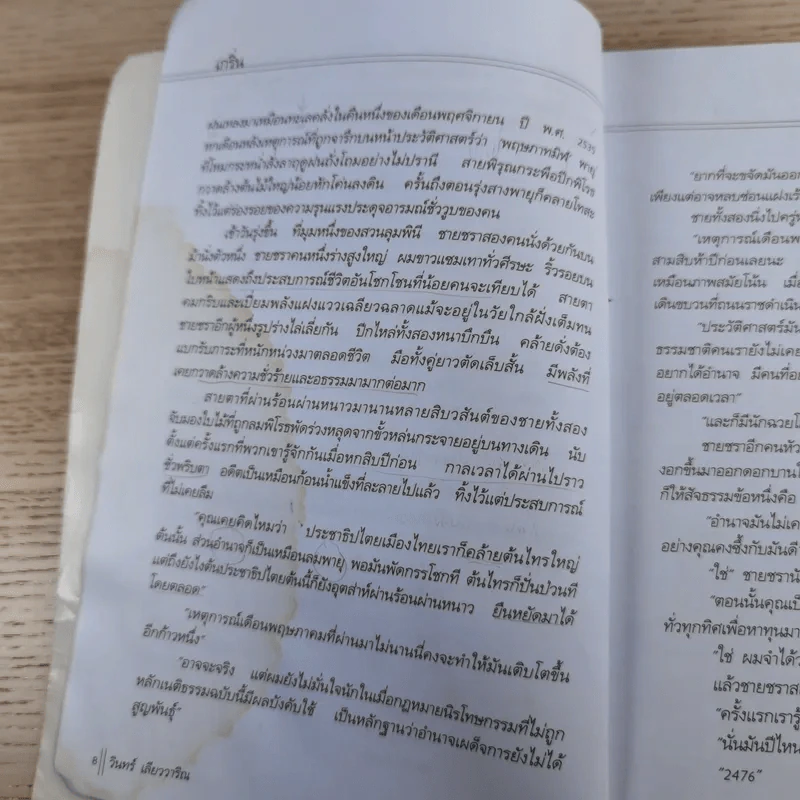 เกริ่น
ฝนเทลงมาเหมือนทะเลคลั่งในคืนหนึ่งของเดือนพฤศจิกายน ปี พ.ศ. 2535
หกเดือนหลังเหตุการณ์ที่ถูกจารึกบนหน้าประวัติศาสตร์ว่า 'พฤษภาทมิฬ' พายุ
ที่โหมกระหน่ำสังลาฤดูฝนถั่งโถมอย่างไม่ปรานี สายพิรุณกระพือปีกพิโรธ
กวาดล้างต้นไม้ใหญ่น้อยหักโค่นลงดิน ครั้นถึงตอนรุ่งสางพายุก็คลายโทสะ
ทิ้งไว้แต่ร่องรอยของความรุนแรงประดุจอารมณ์ชั่ววูบของคน
เช้าวันรุ่งขึ้น ที่มุมหนึ่งของสวนลุมพินี ชายชราสองคนนั่งด้วยกันบน
ม้านั่งตัวหนึ่ง ชายชราคนหนึ่งร่างสูงใหญ่ ผมขาวแซมเทาทั่วศีรษะ ริ้วรอยบน
ใบหน้าแสดงถึงประสบการณ์ชีวิตอันโชกโชนที่น้อยคนจะเทียบได้ สายตา
คมกริบและเปี่ยมพลังแฝงแววเฉลียวฉลาดแม้จะอยู่ในวัยใกล้ฝั่งเต็มทน
ชายชราอีกผู้หนึ่งรูปร่างไล่เลี่ยกัน ปีกไหล่ทั้งสองหนาบึกบึน คล้ายดั่งต้อง
แบกรับภาระที่หนักหน่วงมาตลอดชีวิต มือทั้งคู่ยาวตัดเล็บสั้น มีพลังที่
เคยกวาดล้างความชั่วร้ายและอธรรมมามากต่อมาก
สายตาที่ผ่านร้อนผ่านหนาวมานานหลายสิบวสันต์ของชายทั้งสอง
จับมองใบไม้ที่ถูกลมพิโรธพัดร่วงหลุดจากขั้วหล่นกระจายอยู่บนทางเดิน นับ
ตั้งแต่ครั้งแรกที่พวกเขารู้จักกันเมื่อหกสิบปีก่อน กาลเวลาได้ผ่านไปราว
ชั่วพริบตา อดีตเป็นเหมือนก้อนน้ำแข็งที่ละลายไปแล้ว ทิ้งไว้แต่ประสบการณ์
ที่ไม่เคยลืม
"คุณเคยคิดไหมว่า ประชาธิปไตยเมืองไทยเราก็คล้ายต้นไทรใหญ่
ต้นนั้น ส่วนอำนาจก็เป็นเหมือนลมพายุ พอมันพัดกรรโชกที ต้นไทรก็ปั่นป่วนที
แต่ถึงยังไงต้นประชาธิปไตยต้นนี้ก็ยังอุตส่าห์ผ่านร้อนผ่านหนาว ยืนหยัดมาได้
โดยตลอด"
"เหตุการณ์เดือนพฤษภาคมที่ผ่านมาไม่นานนี่คงจะทำให้มันเติบโตขึ้น
อีกก้าวหนึ่ง"
"อาจจะจริง แต่ผมยังไม่มั่นใจนักในเมื่อกฎหมายนิรโทษกรรมที่ไม่ถูก
หลักเนติธรรมฉบับนี้มีผลบังคับใช้ เป็นหลักฐานว่าอำนาจเผด็จการยังไม่ได้
สูญพันธุ์"
8 || วินทร์ เลียววาริณ
"ยากที่จะขจัดมันออก
เพียงแต่อาจหลบซ่อนแฝงเร้
ชายทั้งสองนิ่งไปครู่ห
"เหตุการณ์เดือนพ
สามสิบห้าปีก่อนเลยนะ
เหมือนภาพสมัยโน้น เมื่
เดินขบวนที่ถนนราชดำเนิน
"ประวัติศาสตร์มัน
ธรรมชาติคนเรายังไม่เคย
อยากได้อำนาจ มีคนที่อย
อยู่ตลอดเวลา"
"และก็มีนักฉวยโ
ชายชราอีกคนหัว
งอกขึ้นมาออกดอกบานใ
ก็ให้สัจธรรมข้อหนึ่งคือ
"อำนาจมันไม่เค
อย่างคุณคงซึ้งกับมันดี
"ใช่" ชายชรานั
"ตอนนั้นคุณเป็
ทั่วทุกทิศเพื่อหาทุนมา
"ใช่ ผมจำได้ว
แล้วชายชราส
"ครั้งแรกเรารู้
"นั่นมันปีไหน
"2476"